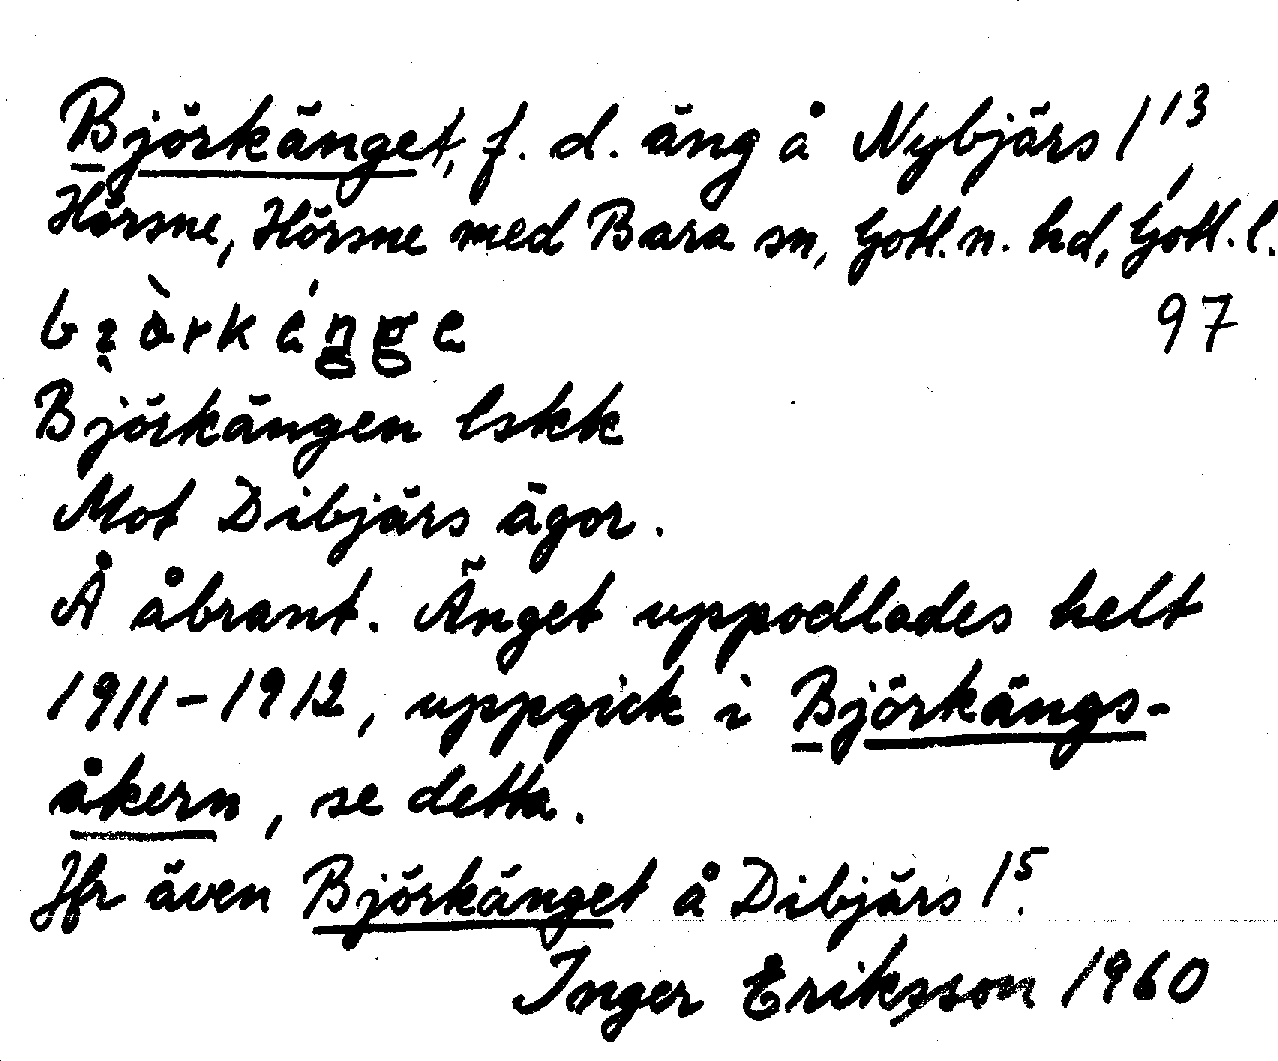 Björkänget, f. d. äng å Nybjärs 1¹³,
Hörsne, Hörsne med Bara sn, Gotl. n. hd, Gotl. l.
97
Björkängen lskk
Mot Dibjärs ägor.
Å åbrant. Änget uppodlades helt
1911-1912, uppgick i Björkängs-
åkern, se detta.
Jfr även Björkänget å Dibjärs 1⁵.
Inger Eriksson 1960